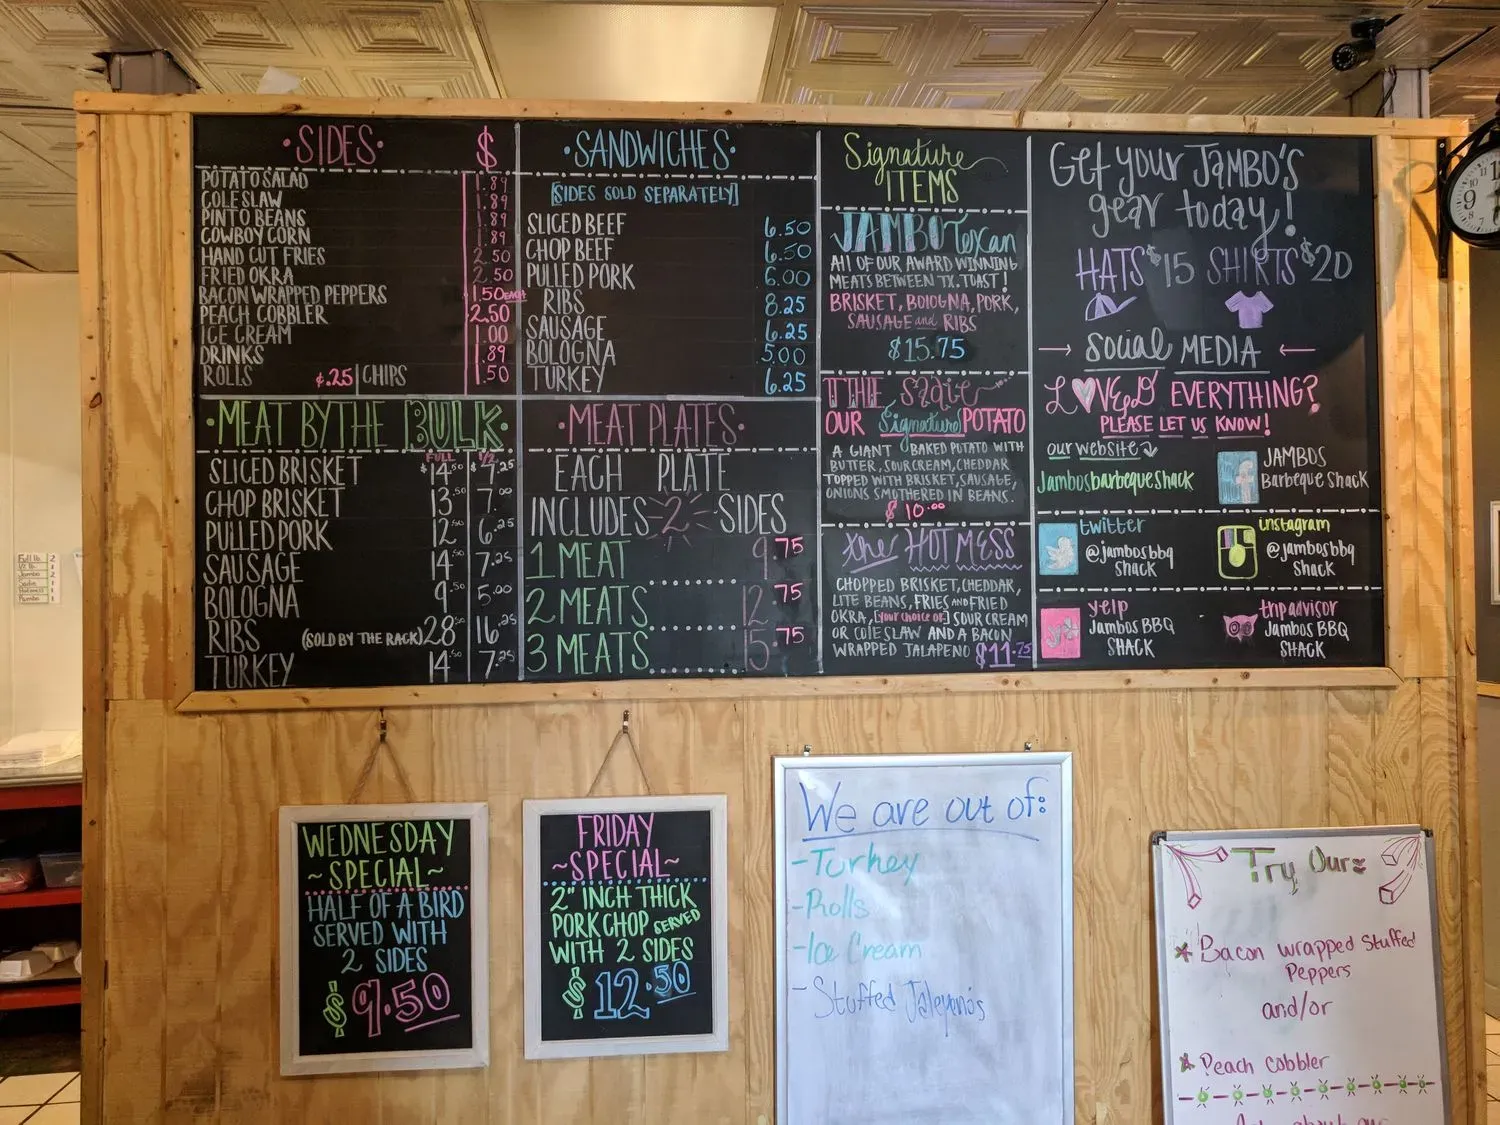 ·SIDES· $
POTATO SALAD 1.89
COLE SLAW 1.89
PINTO BEANS 1.89
COWBOY CORN 1.89
HAND CUT FRIES 2.50
FRIED OKRA 2.50
BACON WRAPPED PEPPERS 1.50 EACH
PEACH COBBLER 2.50
ICE CREAM 1.00
DRINKS 1.89
ROLLS ¢.25 CHIPS 1.50
·MEAT BY THE BULK·
FULL 1/2
SLICED BRISKET $14.50 $7.25
CHOP BRISKET 13.50 7.00
PULLED PORK 12.50 6.25
SAUSAGE 14.50 7.25
BOLOGNA 9.50 5.00
RIBS (SOLD BY THE RACK) 28.50 16.25
TURKEY 14.50 7.25
·SANDWICHES·
[SIDES SOLD SEPARATELY]
SLICED BEEF 6.50
CHOP BEEF 6.50
PULLED PORK 6.00
RIBS 8.25
SAUSAGE 6.25
BOLOGNA 5.00
TURKEY 6.25
·MEAT PLATES·
EACH PLATE
INCLUDES 2 SIDES
1 MEAT 9.75
2 MEATS 12.75
3 MEATS 15.75
Signature
ITEMS
JAMBO Texan
All OF OUR AWARD WINNING
MEATS BETWEEN TX. TOAST!
BRISKET, BOLOGNA, PORK,
SAUSAGE and RIBS
$15.75
THE Sadie
OUR Signature POTATO
A GIANT BAKED POTATO WITH
BUTTER, SOUR CREAM, CHEDDAR
TOPPED WITH BRISKET, SAUSAGE,
ONIONS SMOTHERED IN BEANS.
$10.00
the HOT MESS
CHOPPED BRISKET, CHEDDAR,
LITE BEANS, FRIES AND FRIED
OKRA, [YOUR CHOICE OF] SOUR CREAM
OR COLE SLAW AND A BACON
WRAPPED JALAPENO $11.75
Get your JAMBO'S
gear today!
HATS $15 SHIRTS $20
social MEDIA
LOVED EVERYTHING?
PLEASE LET US KNOW!
our website
JambosbarbequeShack
JAMBOS
Barbeque Shack
twitter
@jambosbbq
SHACK
instagram
@jambosbbq
SHACK
yelp
Jambos BBQ
SHACK
tripadvisor
Jambos BBQ
SHACK
WEDNESDAY
~SPECIAL~
HALF OF A BIRD
SERVED WITH
2 SIDES
$9.50
FRIDAY
~SPECIAL~
2" INCH THICK
PORK CHOP SERVED
WITH 2 SIDES
$12.50
We are out of:
-Turkey
-Rolls
-Ice Cream
-Stuffed Jalepano's
Try Our:
* Bacon wrapped Stuffed
Peppers
and/or
* Peach cobbler